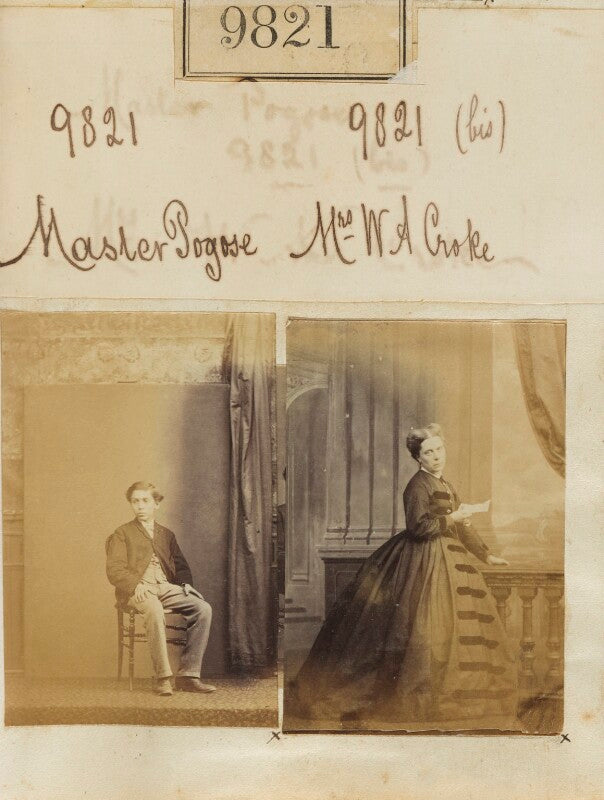 9821
9821 9821 (bis)
Master Pogose Mrs W A Croke